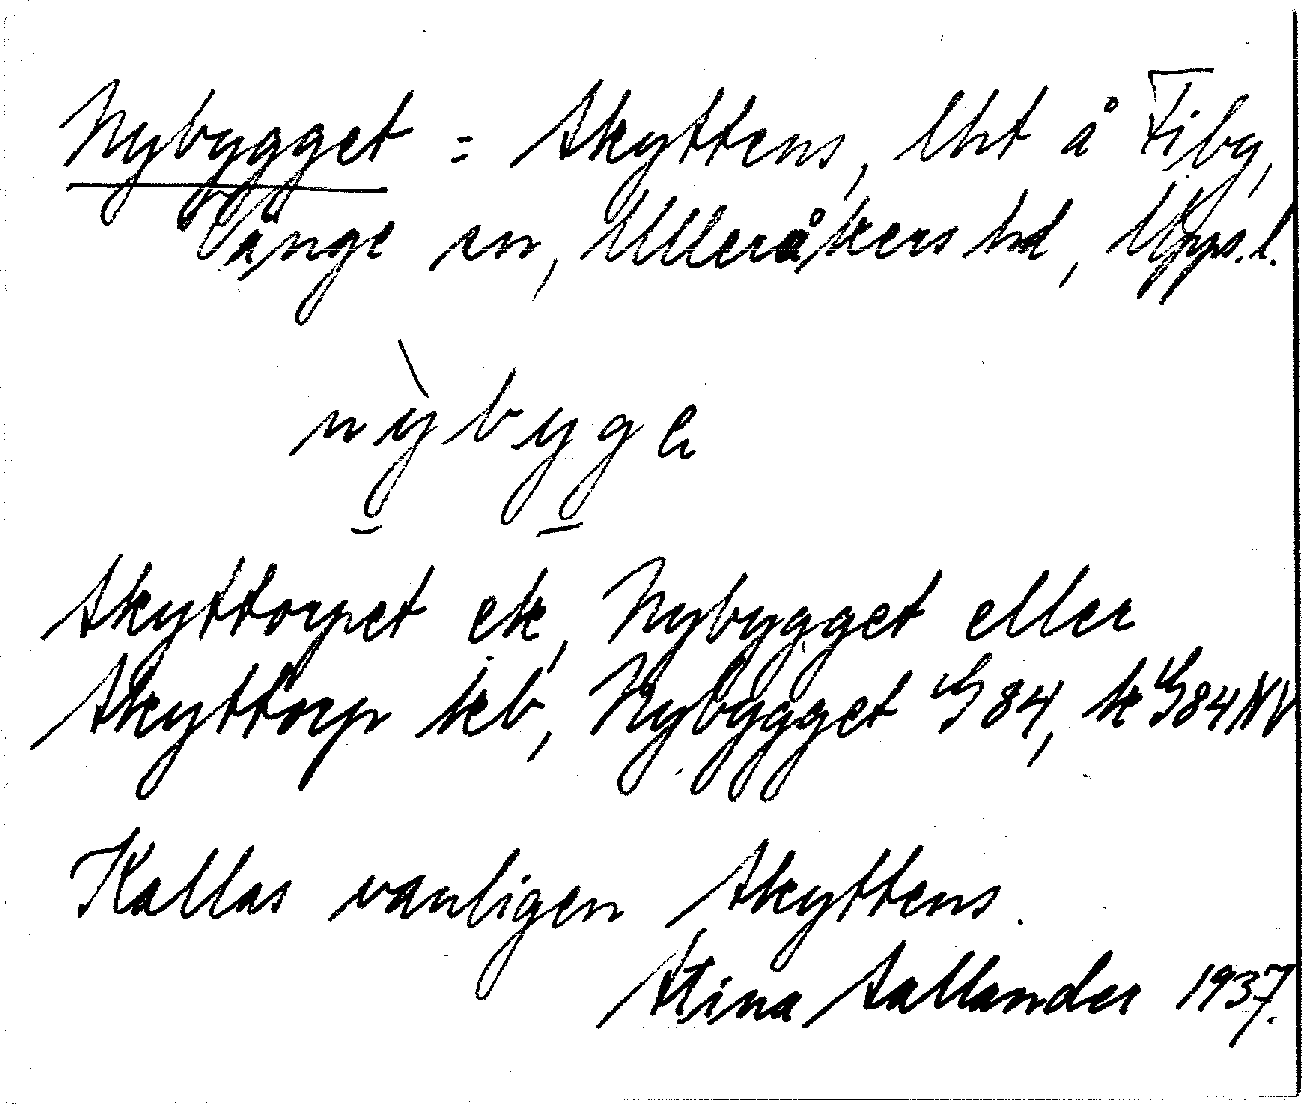 Nybygget = Skyttens, lht å Fiby,
Vänge sn, Ulleråkers hd, Upps. l.
nỳbyge
Skyttorpet ek, Nybygget eller
Skyttorp kb, Nybygget G 84, k G 84 NV
Kallas vanligen Skyttens.
Stina Sallander 1937.